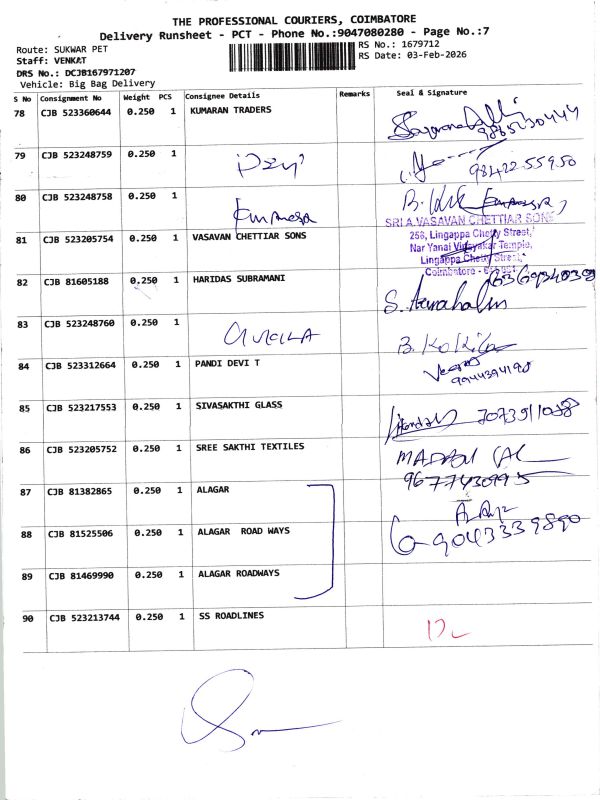 THE PROFESSIONAL COURIERS, COIMBATORE
Delivery Runsheet - PCT - Phone No.:9047080280 - Page No.:7
Route: SUKWAR PET
RS No.: 1679712
Staff: VENKAT
RS Date: 03-Feb-2026
DRS No.: DCJB167971207
Vehicle: Big Bag Delivery
S No Consignment No Weight PCS Consignee Details Remarks Seal & Signature
78 CJB 523360644 0.250 1 KUMARAN TRADERS
79 CJB 523248759 0.250 1
9842255950
80 CJB 523248758 0.250 1
SRI.A.VASAVAN CHETTIAR SONS
81 CJB 523205754 0.250 1 VASAVAN CHETTIAR SONS
258, Lingappa Chetty Street,
Nar Yanai Vinayakar Temple,
Lingappa Chetty Street,
82 CJB 81605188 0.250 1 HARIDAS SUBRAMANI
83 CJB 523248760 0.250 1
B. Kokila
84 CJB 523312664 0.250 1 PANDI DEVI T
9944394198
85 CJB 523217553 0.250 1 SIVASAKTHI GLASS
7073911088
86 CJB 523205752 0.250 1 SREE SAKTHI TEXTILES
MADAN LAL
9677430995
87 CJB 81382865 0.250 1 ALAGAR
88 CJB 81525506 0.250 1 ALAGAR ROAD WAYS
9043339890
89 CJB 81469990 0.250 1 ALAGAR ROADWAYS
90 CJB 523213744 0.250 1 SS ROADLINES